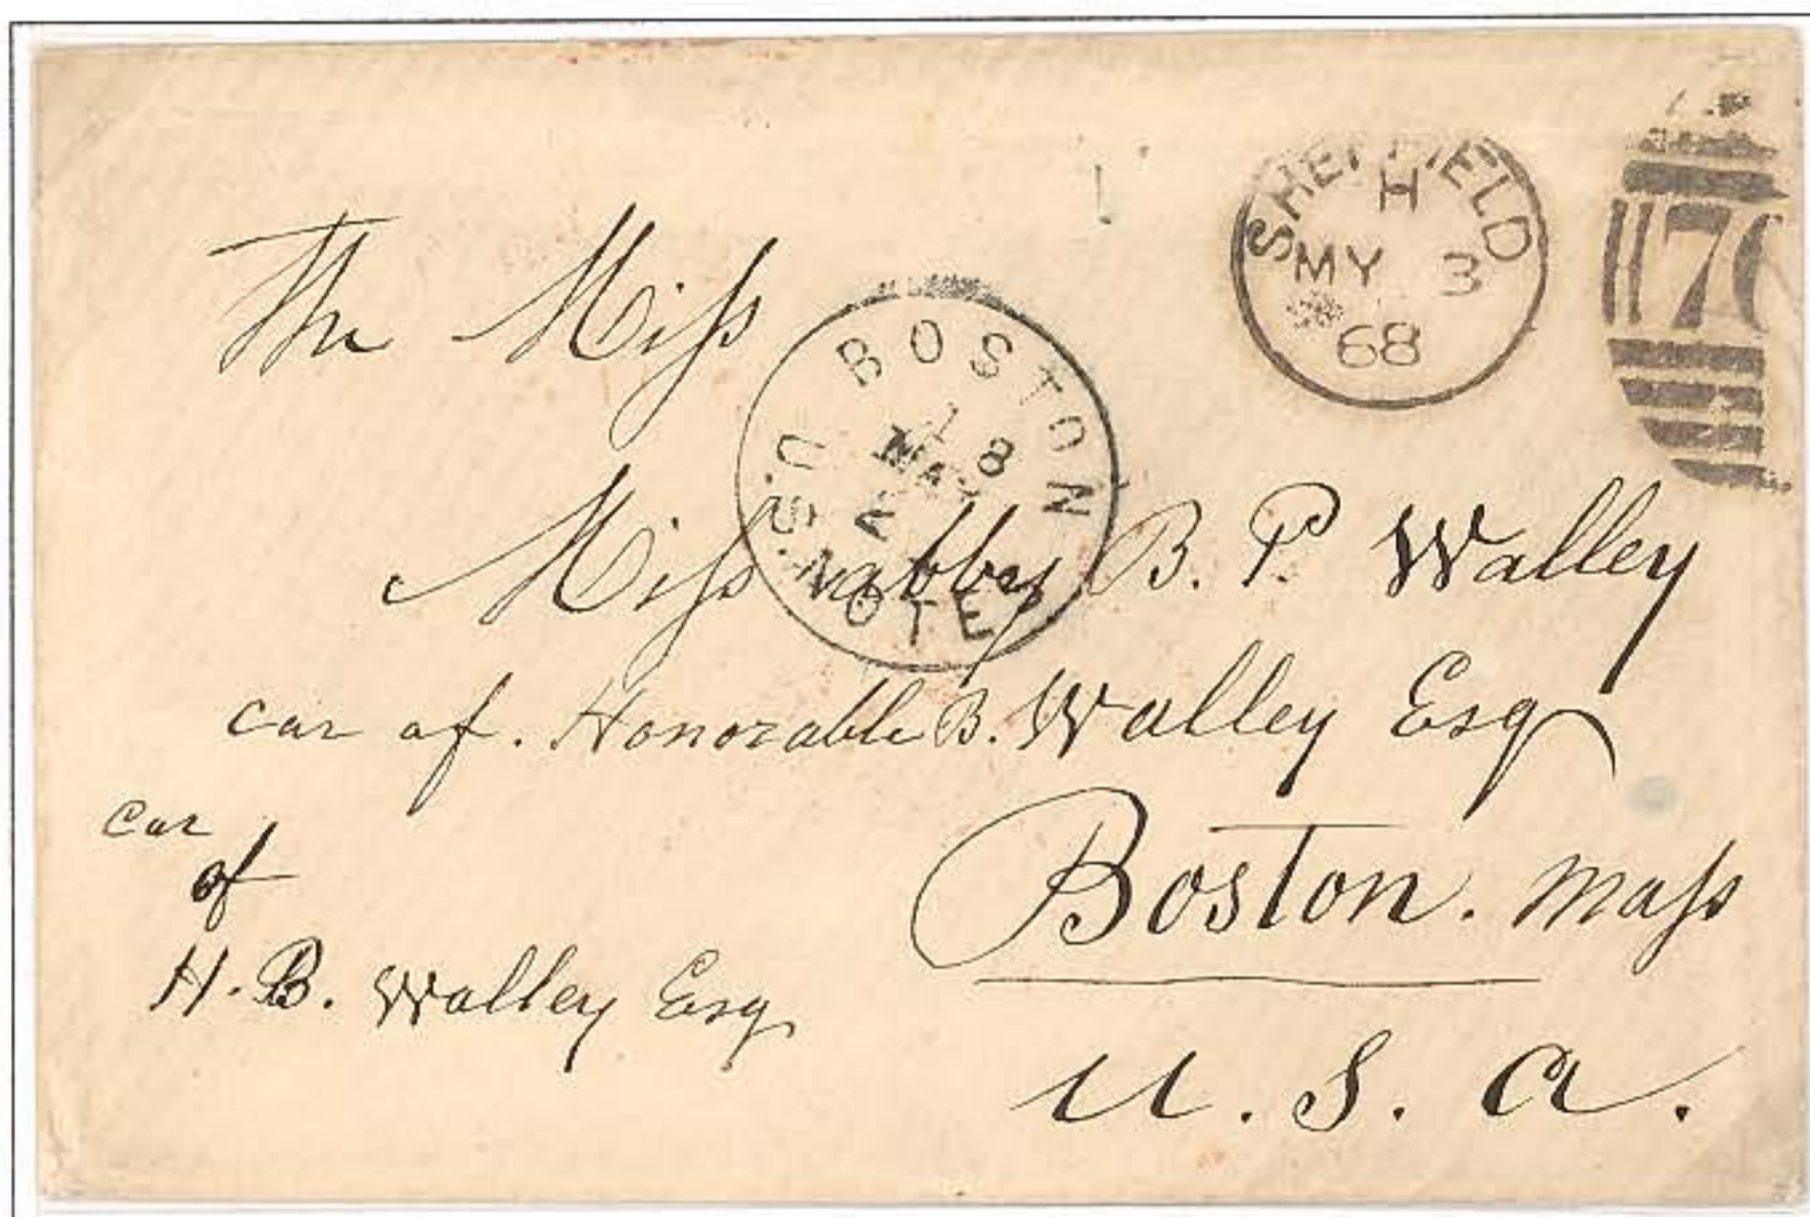 The Miss
SHEFFIELD
H
MY 3
68
BOSTON
18
MAY
U.S. NOTES
Miss Nabby B. P. Walley
car of. Honorable B. Walley Esq
car
of
H. B. Walley Esq
Boston. Mass
U. S. A.